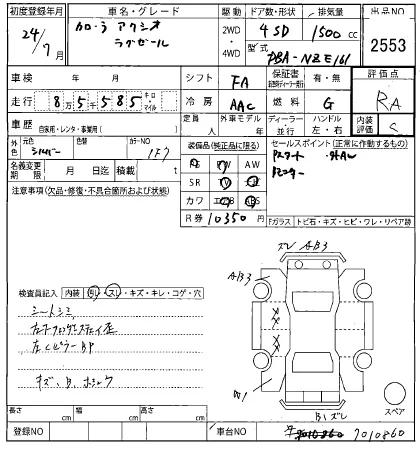 初度登録年月 車名・グレード 駆動 ドア数・形状 排気量 出品NO
24/7月 カローラ アクシオ ラグゼール 2WD・4WD 4 SD 1500 cc 2553
型式 DBA-NZE161
車検 年 月 シフト FA 保証書 有・無 評価点
走行 8万5千585 キロ・マイル 冷房 AAC 燃料 G RA
車歴 自家用・レンタ・事業用( ) 定員 人 外車モデル ディーラー・並行 ハンドル 左・右 内装評価 S
外色 元色 シルバー 色替 カラーNO 1F7
装備品(純正品に限る)
PS PW AW
SR TV ナビ
カワ エアB ABS
セールスポイント(正常に作動するもの)
Pスタート 外AW
名義変更期限 月 日迄 積載 t
R券 10350 円
注意事項(欠品・修復・不具合箇所および状態)
Fガラス トビ石・キズ・ヒビ・ワレ・リペア跡
ズレ AB3
AB3
検査員記入 内装 キレ・スレ・キズ・キレ・コゲ・穴
シートシミ
左CピラーBP
キズ、B、
W1
B1 ズレ
スペア
長さ cm 幅 cm 高さ cm
登録NO 車台NO 7010860